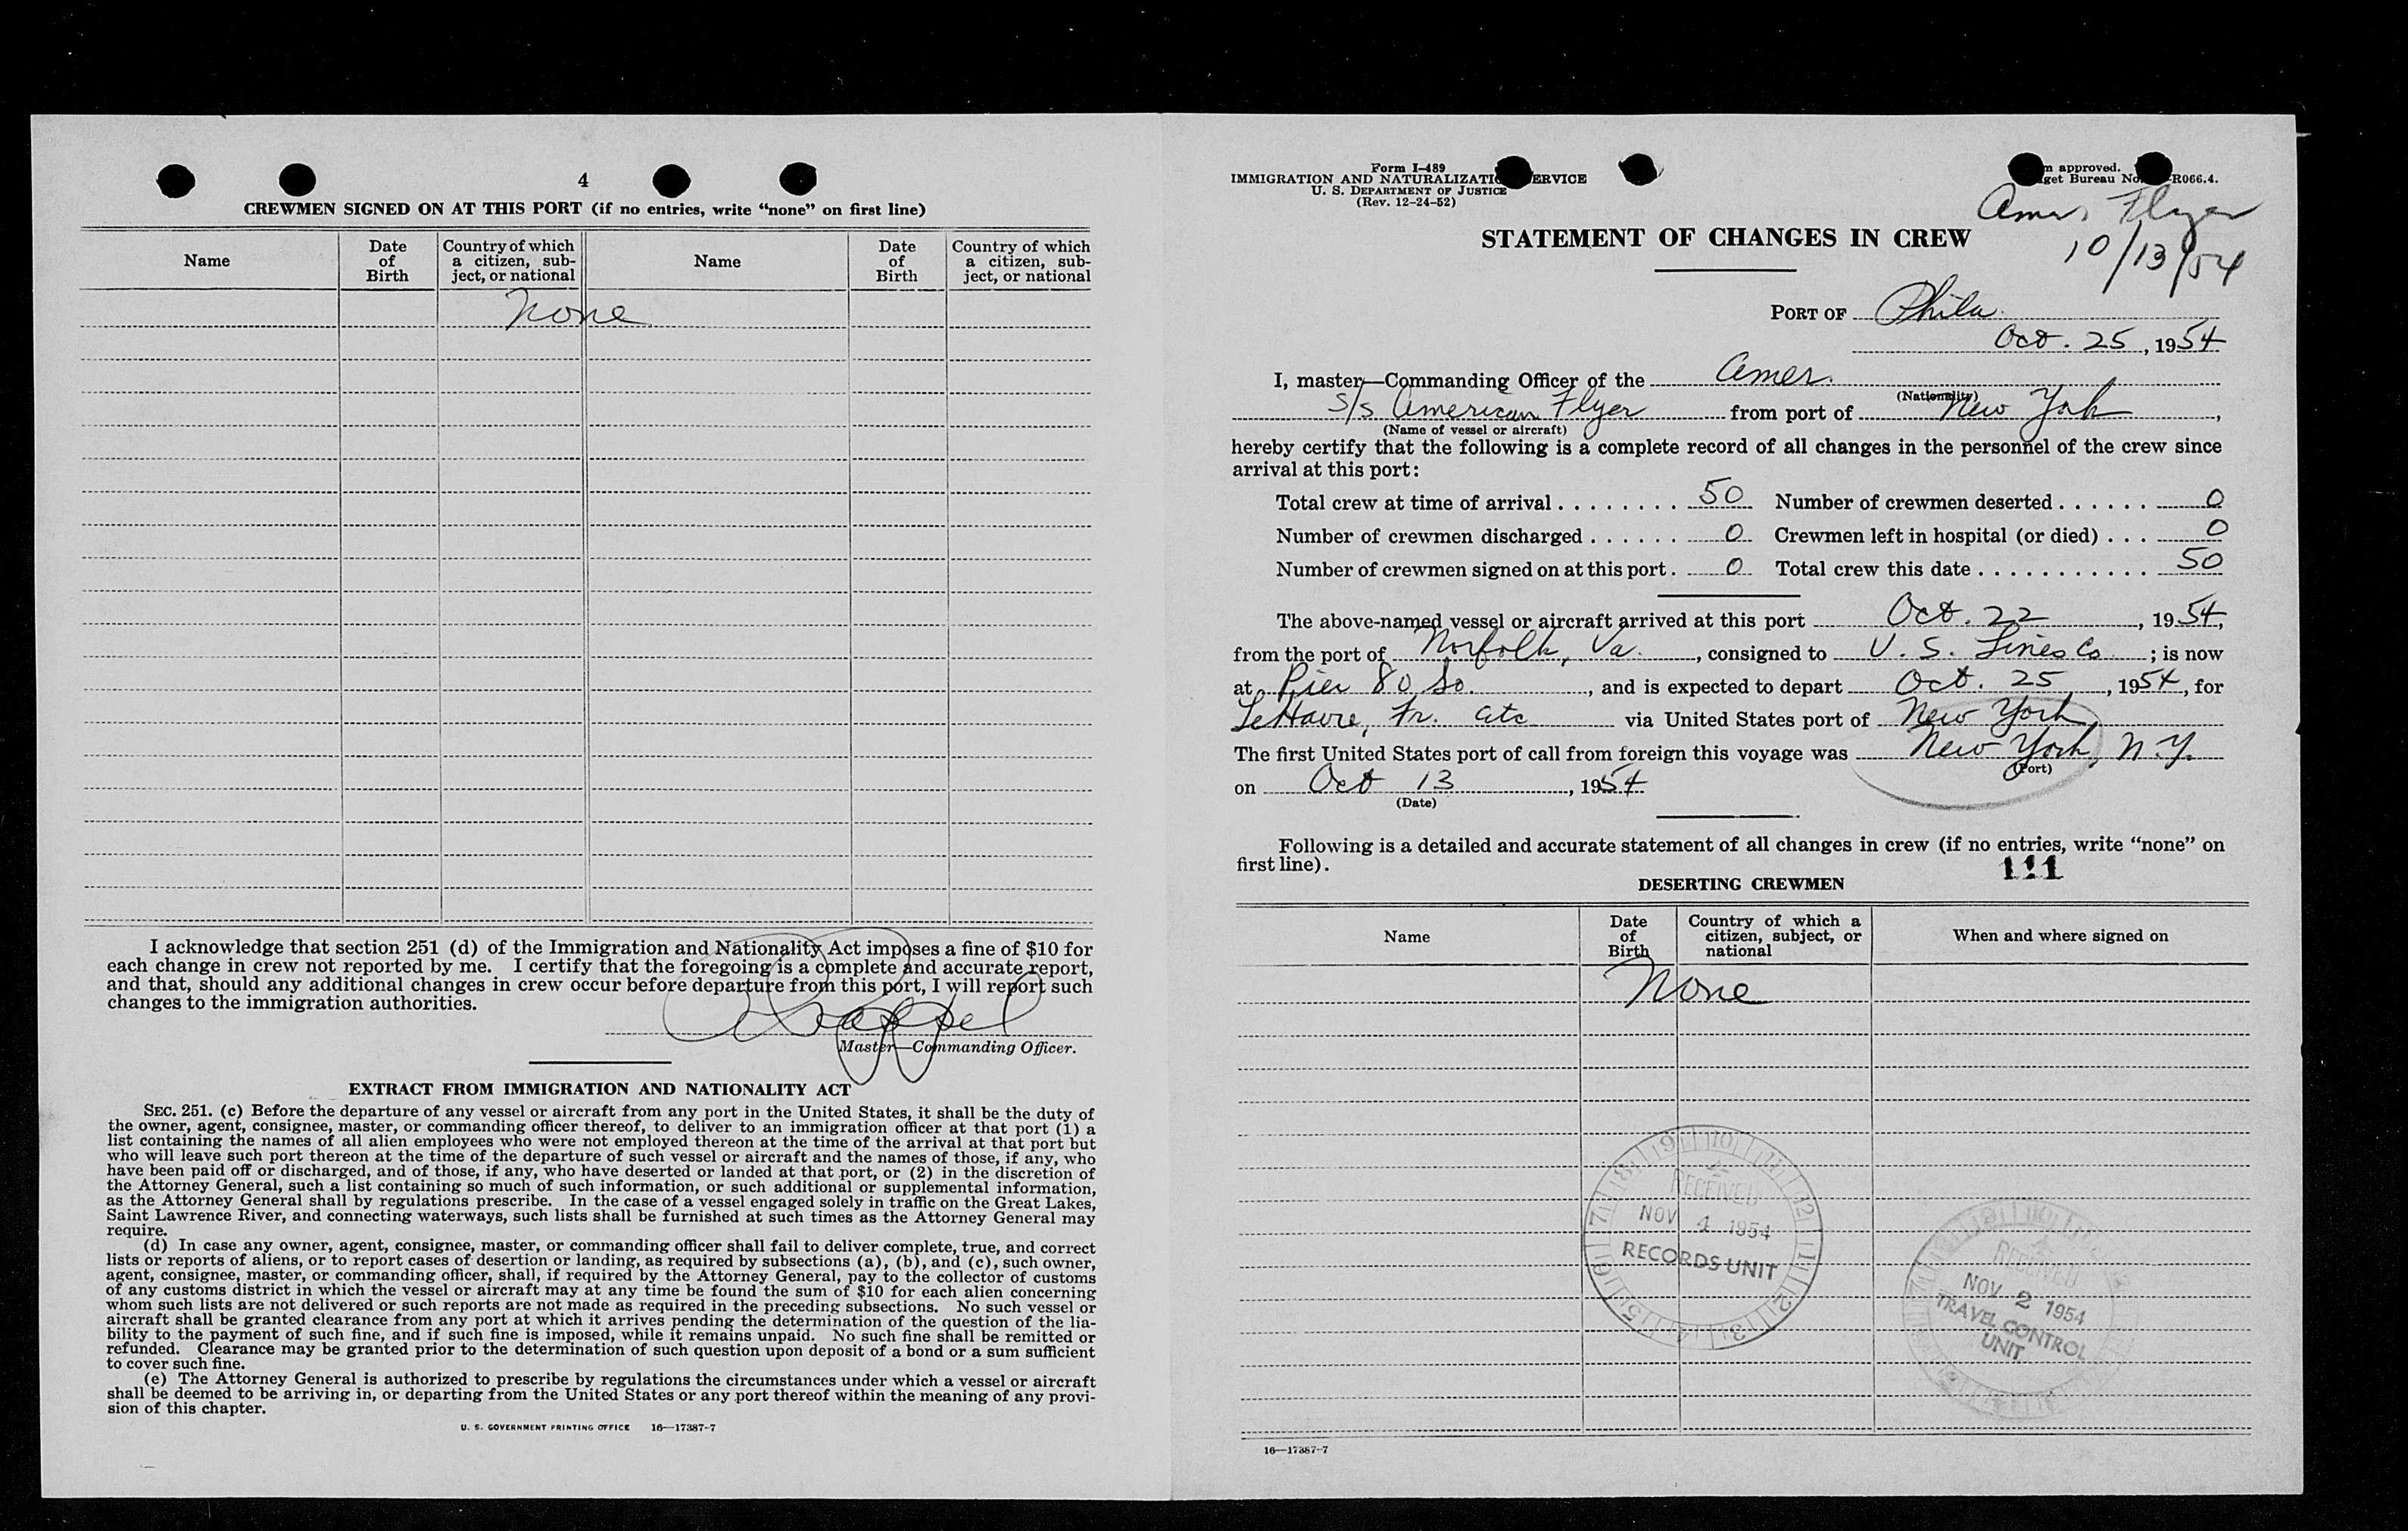 4
CREWMEN SIGNED ON AT THIS PORT (if no entries, write “none” on first line)
Name
Date of Birth
Country of which a citizen, sub-ject, or national
Name
Date of Birth
Country of which a citizen, sub-ject, or national
None
I acknowledge that section 251 (d) of the Immigration and Nationality Act imposes a fine of $10 for
each change in crew not reported by me. I certify that the foregoing is a complete and accurate report,
and that, should any additional changes in crew occur before departure from this port, I will report such
changes to the immigration authorities.
Master—Commanding Officer.
EXTRACT FROM IMMIGRATION AND NATIONALITY ACT
SEC. 251. (c) Before the departure of any vessel or aircraft from any port in the United States, it shall be the duty of
the owner, agent, consignee, master, or commanding officer thereof, to deliver to an immigration officer at that port (1) a
list containing the names of all alien employees who were not employed thereon at the time of the arrival at that port but
who will leave such port thereon at the time of the departure of such vessel or aircraft and the names of those, if any, who
have been paid off or discharged, and of those, if any, who have deserted or landed at that port, or (2) in the discretion of
the Attorney General, such a list containing so much of such information, or such additional or supplemental information,
as the Attorney General shall by regulations prescribe. In the case of a vessel engaged solely in traffic on the Great Lakes,
Saint Lawrence River, and connecting waterways, such lists shall be furnished at such times as the Attorney General may
require.
(d) In case any owner, agent, consignee, master, or commanding officer shall fail to deliver complete, true, and correct
lists or reports of aliens, or to report cases of desertion or landing, as required by subsections (a), (b), and (c), such owner,
agent, consignee, master, or commanding officer, shall, if required by the Attorney General, pay to the collector of customs
of any customs district in which the vessel or aircraft may at any time be found the sum of $10 for each alien concerning
whom such lists are not delivered or such reports are not made as required in the preceding subsections. No such vessel or
aircraft shall be granted clearance from any port at which it arrives pending the determination of the question of the lia-
bility to the payment of such fine, and if such fine is imposed, while it remains unpaid. No such fine shall be remitted or
refunded. Clearance may be granted prior to the determination of such question upon deposit of a bond or a sum sufficient
to cover such fine.
(e) The Attorney General is authorized to prescribe by regulations the circumstances under which a vessel or aircraft
shall be deemed to be arriving in, or departing from the United States or any port thereof within the meaning of any provi-
sion of this chapter.
U. S. GOVERNMENT PRINTING OFFICE 16—17387-7
Form I-489
IMMIGRATION AND NATURALIZATI ERVICE
U. S. DEPARTMENT OF JUSTICE
(Rev. 12-24-52)
m approved.
get Bureau No. R066.4.
Amer Flyer
10/13/54
STATEMENT OF CHANGES IN CREW
PORT OF Phila.
Oct. 25, 1954
I, master—Commanding Officer of the Amer.
(Nationality)
S/s American Flyer from port of New York,
(Name of vessel or aircraft)
hereby certify that the following is a complete record of all changes in the personnel of the crew since
arrival at this port:
Total crew at time of arrival 50 Number of crewmen deserted 0
Number of crewmen discharged 0 Crewmen left in hospital (or died) 0
Number of crewmen signed on at this port. 0 Total crew this date 50
The above-named vessel or aircraft arrived at this port Oct. 22, 1954,
from the port of Norfolk, Va., consigned to U. S. Lines Co; is now
at Pier 80 So., and is expected to depart Oct. 25, 1954, for
Le Havre, Fr. etc via United States port of New York
The first United States port of call from foreign this voyage was New York, N.Y.
(Port)
on Oct 13, 1954
(Date)
Following is a detailed and accurate statement of all changes in crew (if no entries, write “none” on
first line).
111
DESERTING CREWMEN
Name
Date of Birth
Country of which a citizen, subject, or national
When and where signed on
None
RECEIVED
NOV 4 1954
RECORDS UNIT
RECEIVED
NOV 2 1954
TRAVEL CONTROL
UNIT
16—17387-7